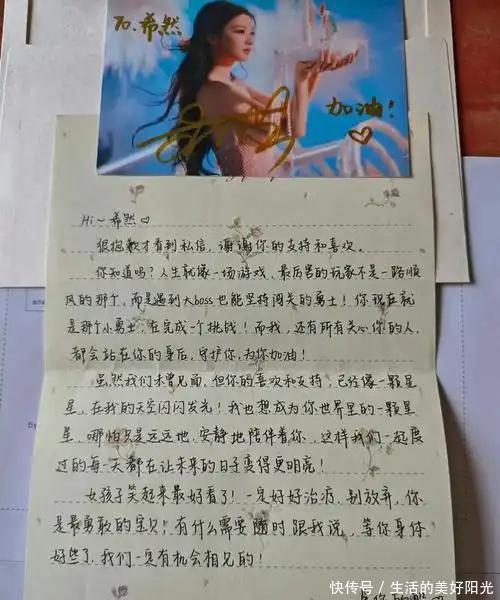 To.希然
加油!
Hi~希然
很抱歉才看到私信,谢谢你的支持和喜欢。
你知道吗?人生就像一场游戏、最厉害的玩家不是一路顺
风的那个、而是遇到大boss也能坚持闯关的勇士!你现在就
是那个小勇士,在完成一个挑战!而我,还有所有关心你的人,
都会站在你的身后,守护你,为你加油!
虽然我们未曾见面,但你的喜欢和支持,已经像一颗星
星,在我的天空闪闪发光!我也想成为你世界里的一颗星
星,哪怕只是远远地,安静地陪伴着你,这样我们一起度
过的每一天都在让未来的日子变得更明亮!
女孩子笑起来最好看了!一定好好治疗,别放弃,你
是最勇敢的宝贝!有什么需要随时跟我说,等你身体
好些了,我们一定有机会相见的!
快传号/生活的美好阳光